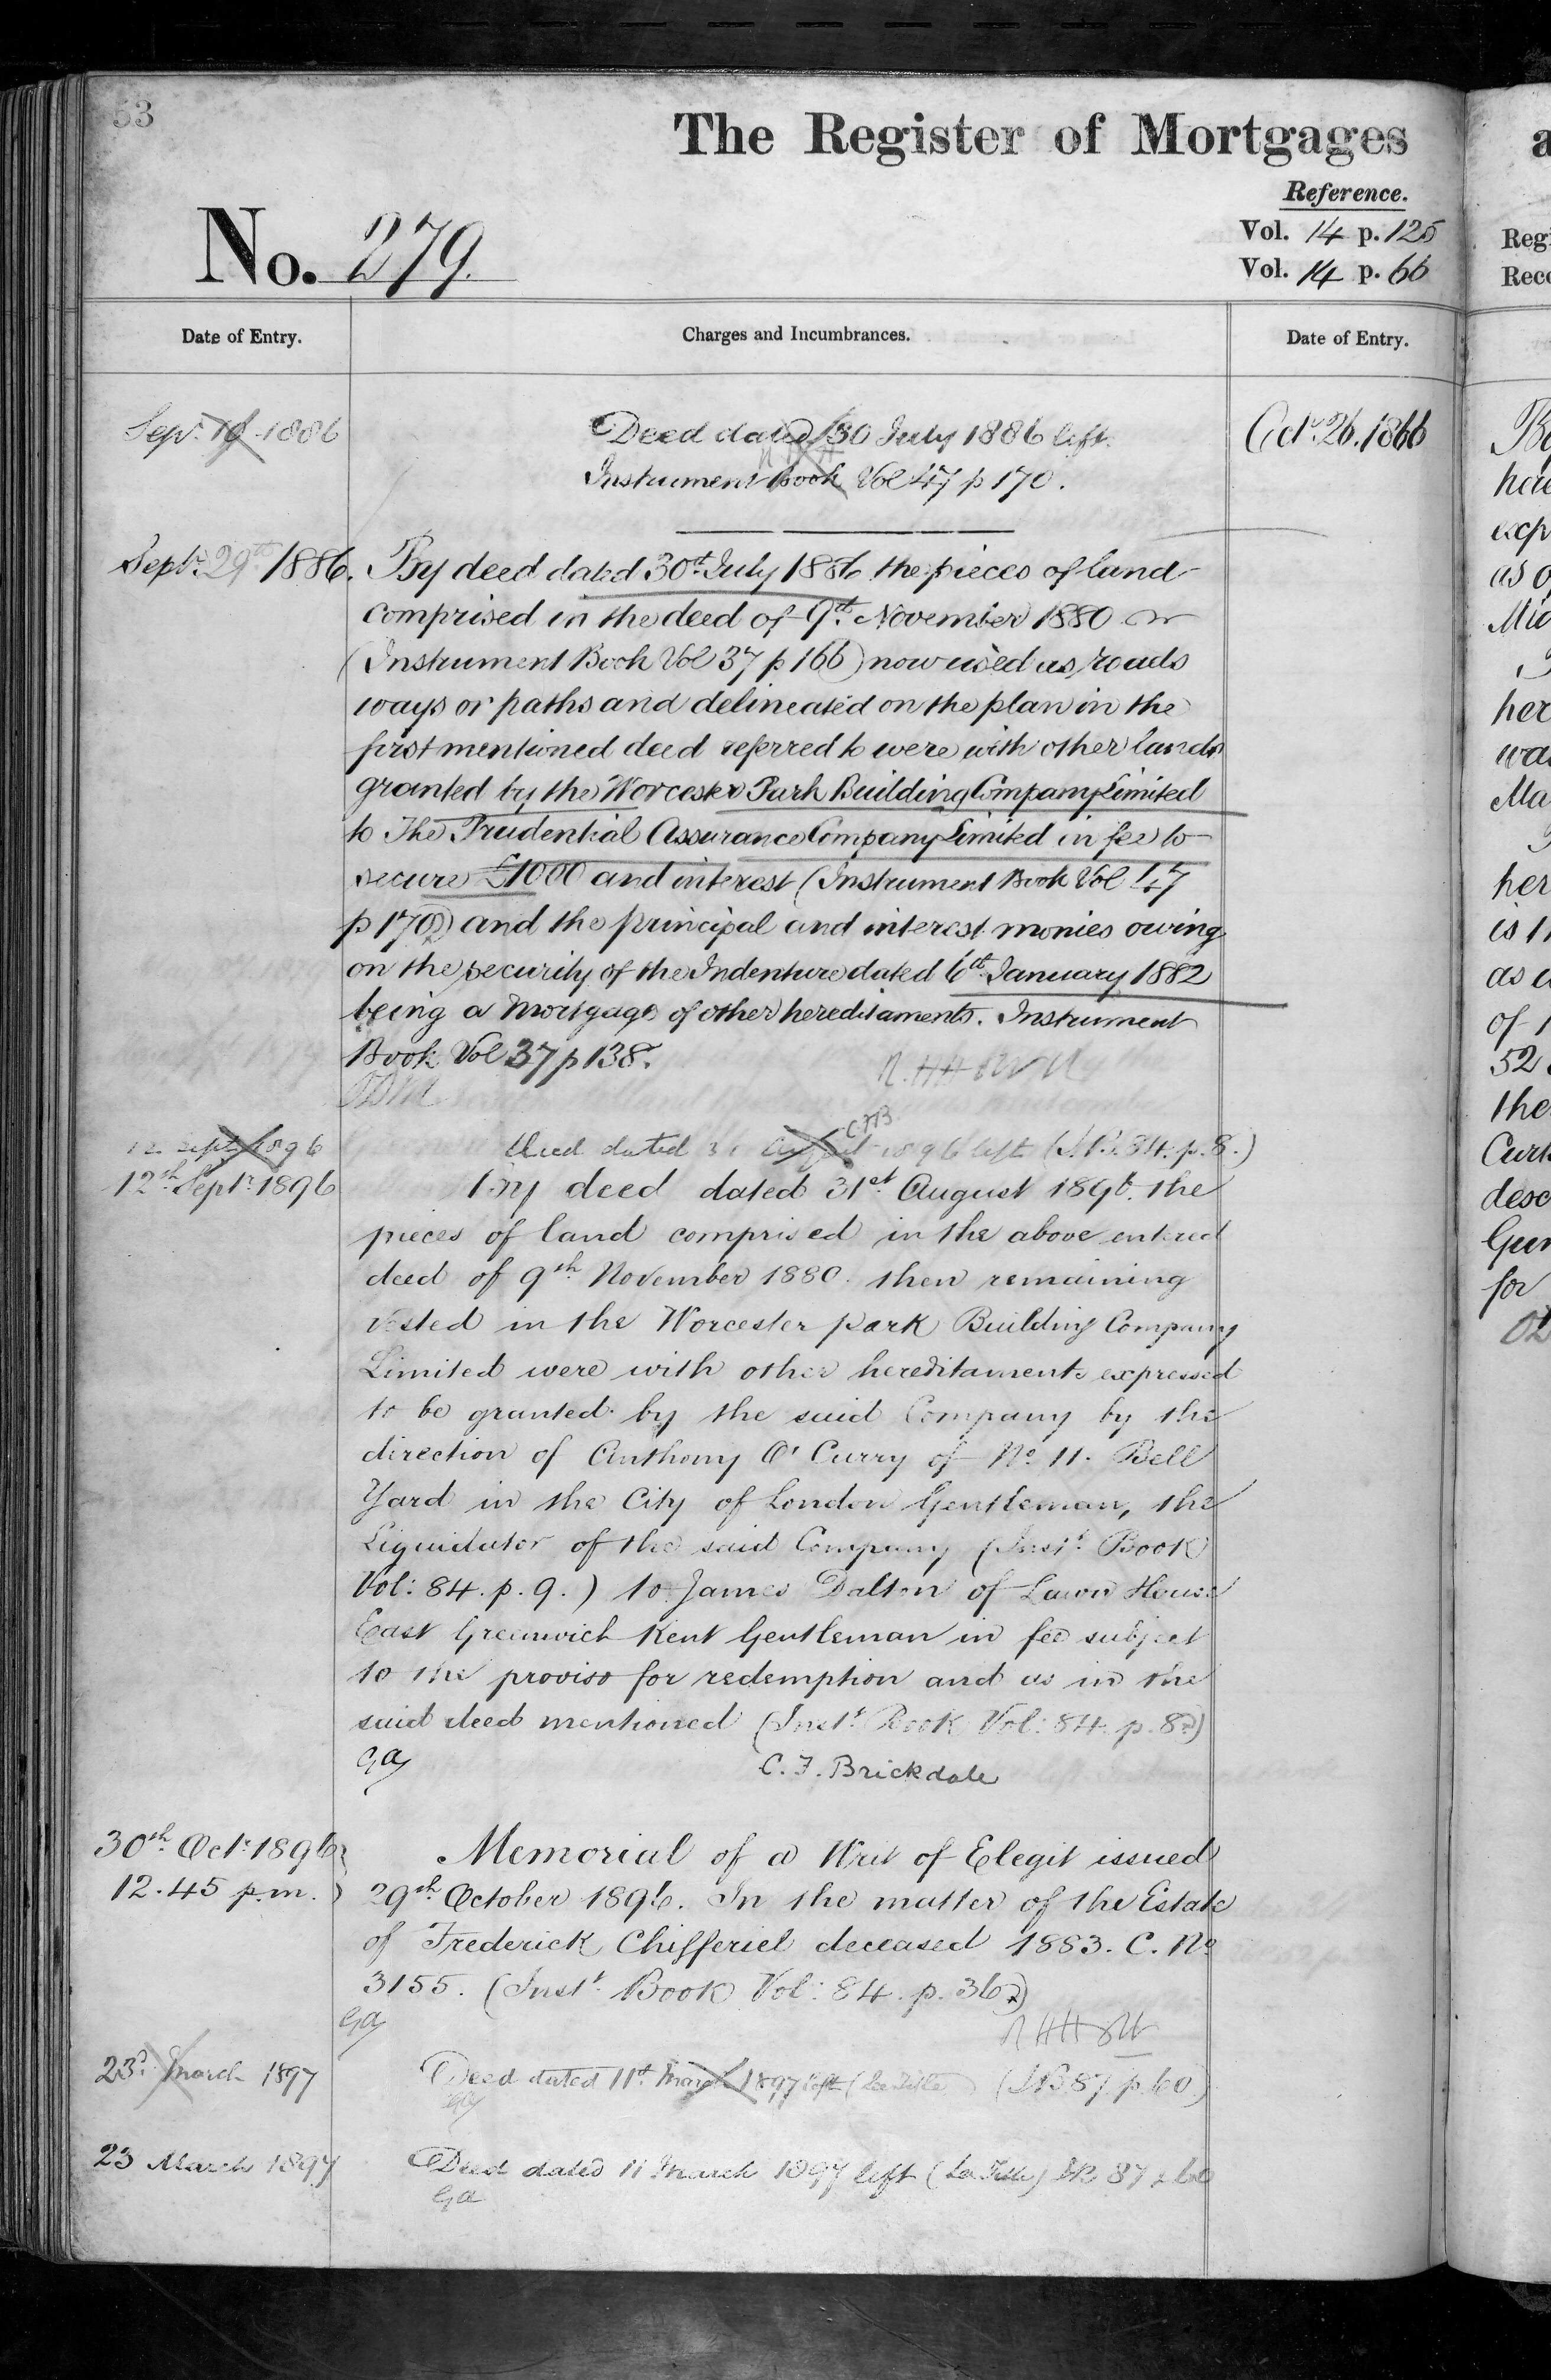 53
The Register of Mortgages
Reference.
No. 279.
Vol. 14 p. 125
Vol. 14 p. 66
Date of Entry.
Charges and Incumbrances.
Date of Entry.
Sepr. 1886
Deed dated 30 July 1886 left.
Instrument Book Vol 47 p 170.
Octr. 26. 1866
Septr. 29th 1886.
By deed dated 30th July 1886 the pieces of land
comprised in the deed of 9th November 1880
(Instrument Book Vol 37 p 166) now used as roads
ways or paths and delineated on the plan in the
first mentioned deed referred to were with other lands
granted by the Worcester Park Building Company Limited
to The Prudential Assurance Company Limited in fee to
secure £1000 and interest (Instrument Book Vol 47
p 170) and the principal and interest monies owing
on the security of the Indenture dated 6th January 1882
being a Mortgage of other hereditaments. Instrument
Book Vol 37 p 138.
12 Sept 1896
Deed dated 31 August 1896 left (I.B. 84. p. 8.)
CFB
12th Septr. 1896
By deed dated 31st August 1896. the
pieces of land comprised in the above entered
deed of 9th November 1880. then remaining
vested in the Worcester park Building Company
Limited were with other hereditaments expressed
to be granted by the said Company by the
direction of Anthony O'Curry of No. 11. Bell
Yard in the City of London Gentleman, the
Liquidator of the said Company (Inst. Book
Vol: 84. p. 9.) to James Dalton of Lawn House
East Greenwich Kent Gentleman in fee subject
to the proviso for redemption and as in the
said deed mentioned (Inst. Book Vol: 84. p. 8.)
Ga
C. F. Brickdale
30th Oct. 1896
12.45 p.m.
Memorial of a Writ of Elegit issued
29th October 1896. In the matter of the Estate
of Frederick Chifferiel deceased 1883. C. No
3155. (Inst. Book Vol: 84. p. 36.)
Ga
23rd March 1897
Deed dated 11th March 1897 left (See Title) (I.B 87 p. 60)
Ga
23 March 1897
Deed dated 11 March 1897 left (See Title) IB 87 p 60
Ga